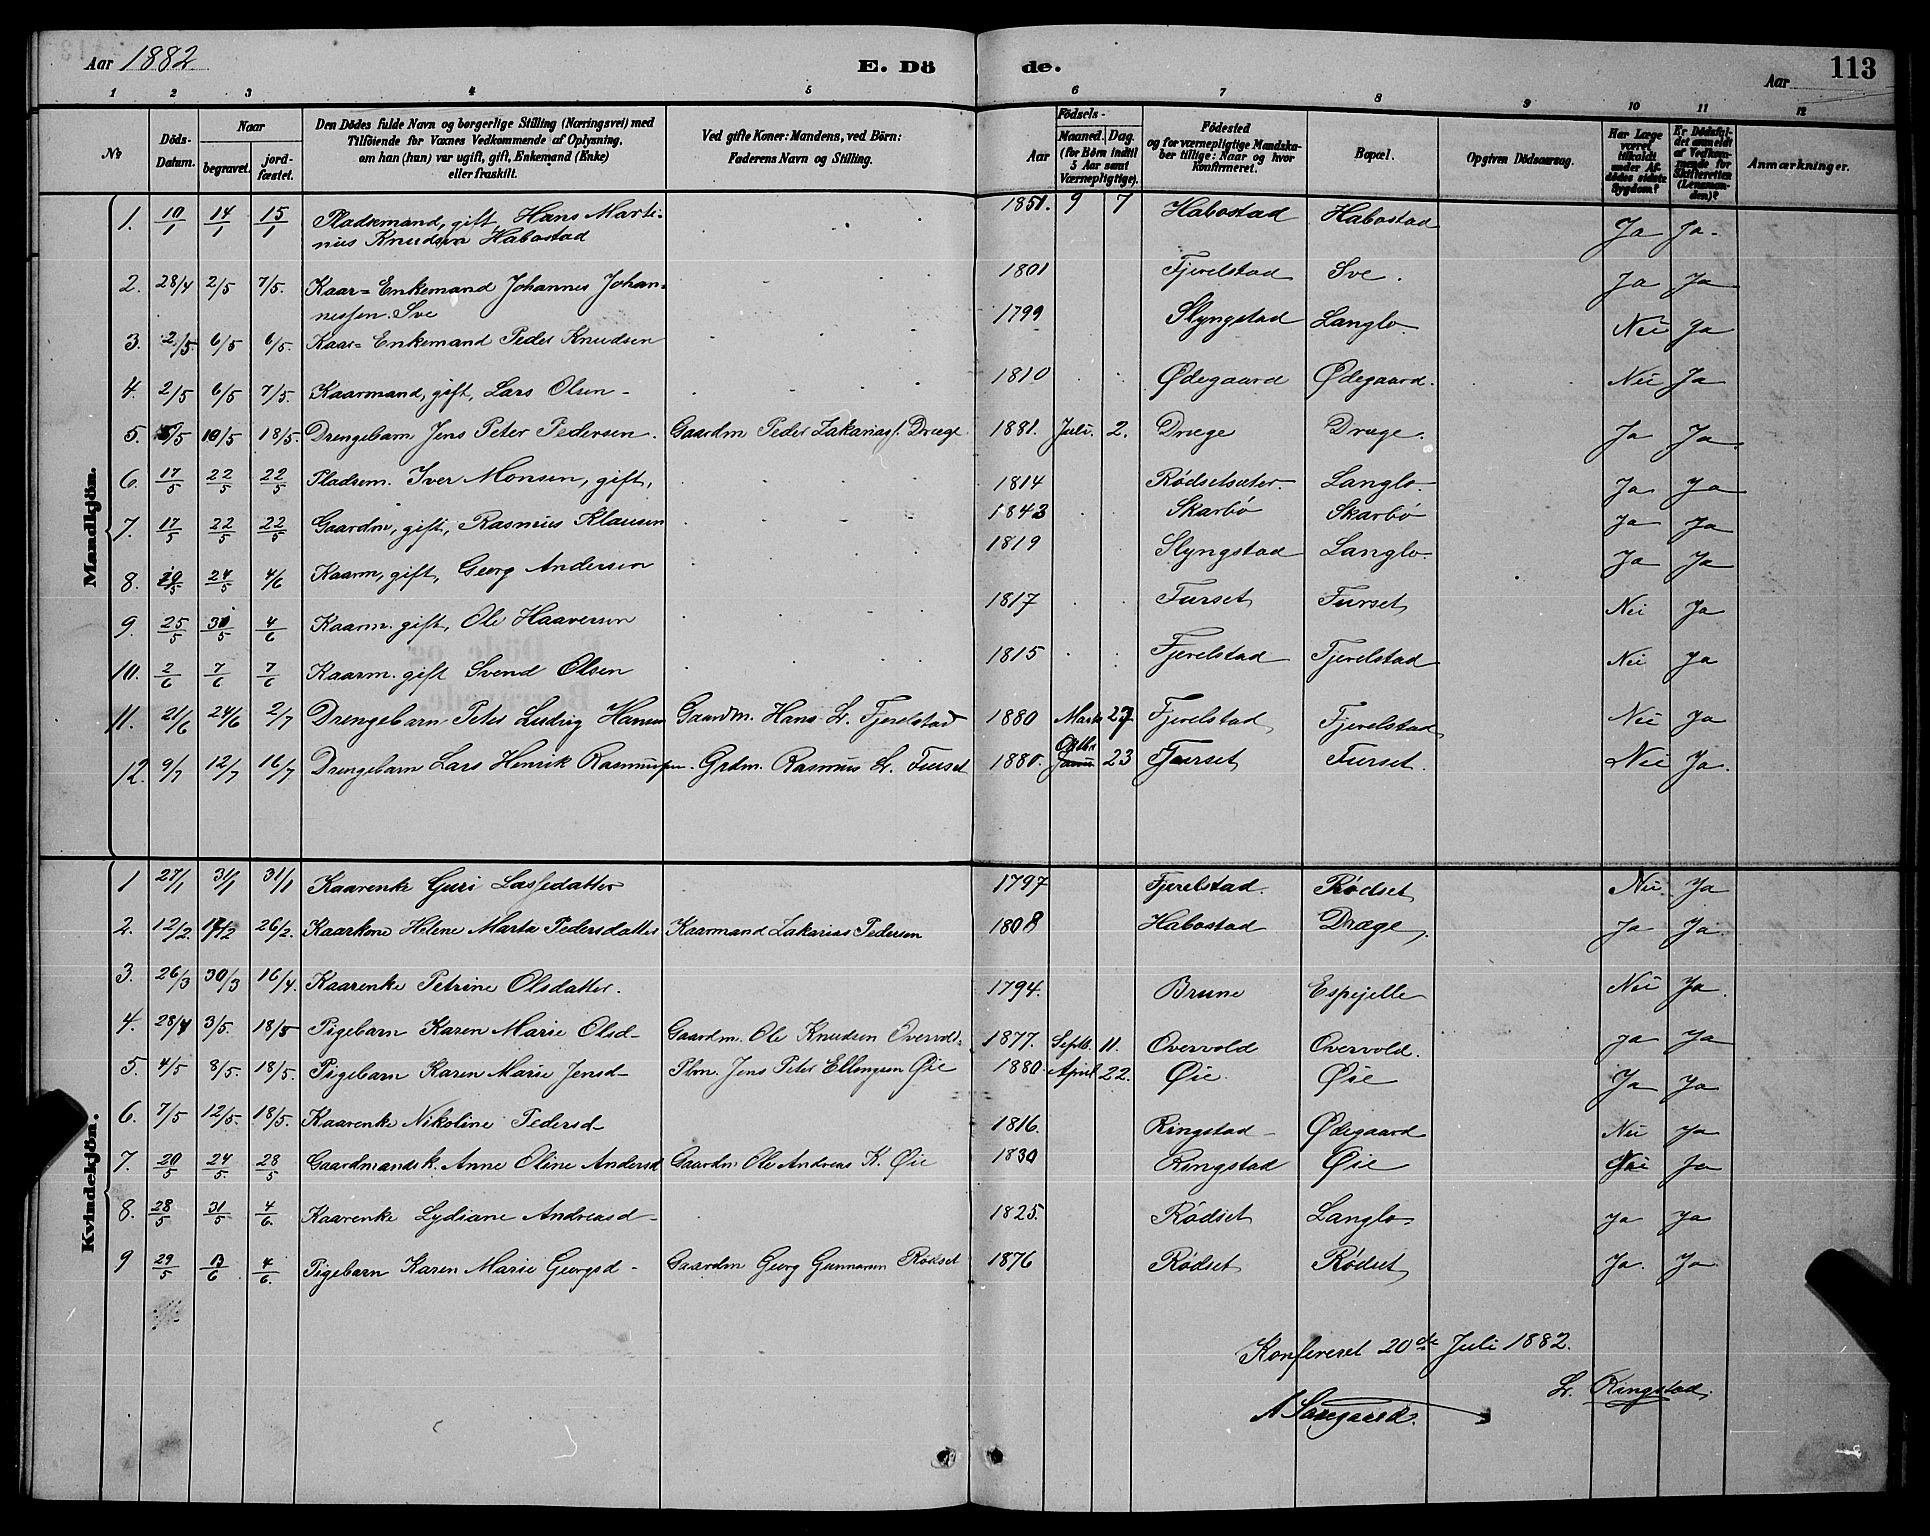 Aar 1882.
E. Dö de.
Aar
113
1 2 3 4 5 6 7 8 9 10 11 12
No
Döds-Datum.
Naar begravet. jord-fæstet.
Den Dödes fulde Navn og borgerlige Stilling (Næringsvei) med
Tilföiende for Voxnes Vedkommende af Oplysning,
om han (hun) var ugift, gift, Enkemand (Enke)
eller fraskilt.
Ved gifte Koner: Mandens, ved Börn:
Faderens Navn og Stilling.
Födsels-
Aar
Maaned. Dag.
(for Börn indtil
5 Aar samt
Værnepligtige).
Födested
og for værnepligtige Mandska-
ber tillige: Naar og hvor
konfirmeret.
Bopæl.
Opgiven Dödsaarsag.
Har Læge
været
tilkaldt
under Af-
dödes sidste
Sygdom?
Er Dödsfal-
det anmeldt
af Vedkom-
mende for
Skifteretten
(Lensman-
den)?
Anmærkninger.
Mandkjön.
1. 10/1 14/1 15/1 Pladsemand, gift Hans Marti- 1851. 9 7 Habostad Habostad Ja Ja.
nus Knudsen Habostad
2. 28/4 2/5 7/5. Kaar= Enkemand Johannes Johan- 1801 Fjerelstad Sve. Ja Ja
nessen Sve
3. 2/5 6/5 6/5. Kaar= Enkemand Peder Knudsen 1799 Slyngstad Langlo. Nei Ja
4. 2/5 6/5 7/5. Kaarmand, gift, Lars Olsen 1810 Ødegaard Ødegaard. Nei Ja
5. 5/5 10/5 18/5. Drengebarn Jens Peter Pedersen. Gaardm Peder Zakarias. Drage 1881. Juli. 2. Drage Drage. Ja Ja
6. 17/5 22/5 22/5 Pladsem. Iver Monsen, gift, 1814 Rødsetsæter. Langlo. Ja Ja
7. 17/5 22/5 22/5 Gaardm, gift, Rasmus Klausen 1843 Skarbø Skarbø Ja Ja
8. 24/5 4/6 Kaarm, gift, Georg Andersen 1819 Slyngstad Langlo Ja Ja
9. 25/5 30/5 4/6 Kaarm. gift, Ole Haaversen 1817 Furset Furset Nei Ja
10. 2/6 7/6 7/6 Kaarm. gift Svend Olsen 1815 Fjerelstad Fjerelstad Nei Ja
11. 21/6 24/6 2/7 Drengebarn Peter Ludvig Hansen Gaardm. Hans L. Fjerelstad 1880 Marts 27. Fjerelstad Fjerelstad Nei Ja
12. 9/7 12/7 16/7 Drengebarn Lars Henrik Rasmussen. Grdm. Rasmus L. Furset 1880. 23 Furset Furset. Nei Ja.
Kvindekjön.
1 27/1 31/1 31/1 Kaarenke Guri Lassedatter 1797 Fjerelstad. Rødset Nei. Ja
2. 12/2. 17/2 26/2. Kaarkone Helene Marta Pedersdatter Kaarmand Zakarias Pedersen 1808 Habostad Drage. Ja Ja
3. 26/3 30/3 16/4. Kaarenke Petrine Olsdatter. 1794. Brune Espejelle Nei Ja.
4. 28/4 3/5. 18/5 Pigebarn Karen Marie Olsd. Gaardm. Ole Knudsen Overvold 1877. Septb. 11. Overvold Overvold. Ja Ja
5. 4/5 8/5 18/5. Pigebarn Karen Marie Jensd. Plm. Jens Peter Ellingsen Øie 1880. April 22. Øie. Øie Ja Ja
6. 7/5 12/5. 18/5. Kaarenke Nikoline Pedersd. 1816. Ringstad Ødegaard Nei Ja
7. 20/5 24/5. 28/5 Gaardmandsk. Anne Oline Andersd Gaardm Ole Andreas K. Øie 1830 Ringstad Øie Nei Ja
8. 28/5 31/5 4/6. Kaarenke Lydiane Andreasd. 1825. Rødset Langlo. Ja Ja
9 29/5 4/6. Pigebarn Karen Marie Georgsd. Gaardm Georg Gunnarsen Rødset 1876 Rødset Rødset Ja. Ja
Konfereret 20de Juli 1882.
L. Ringstad.